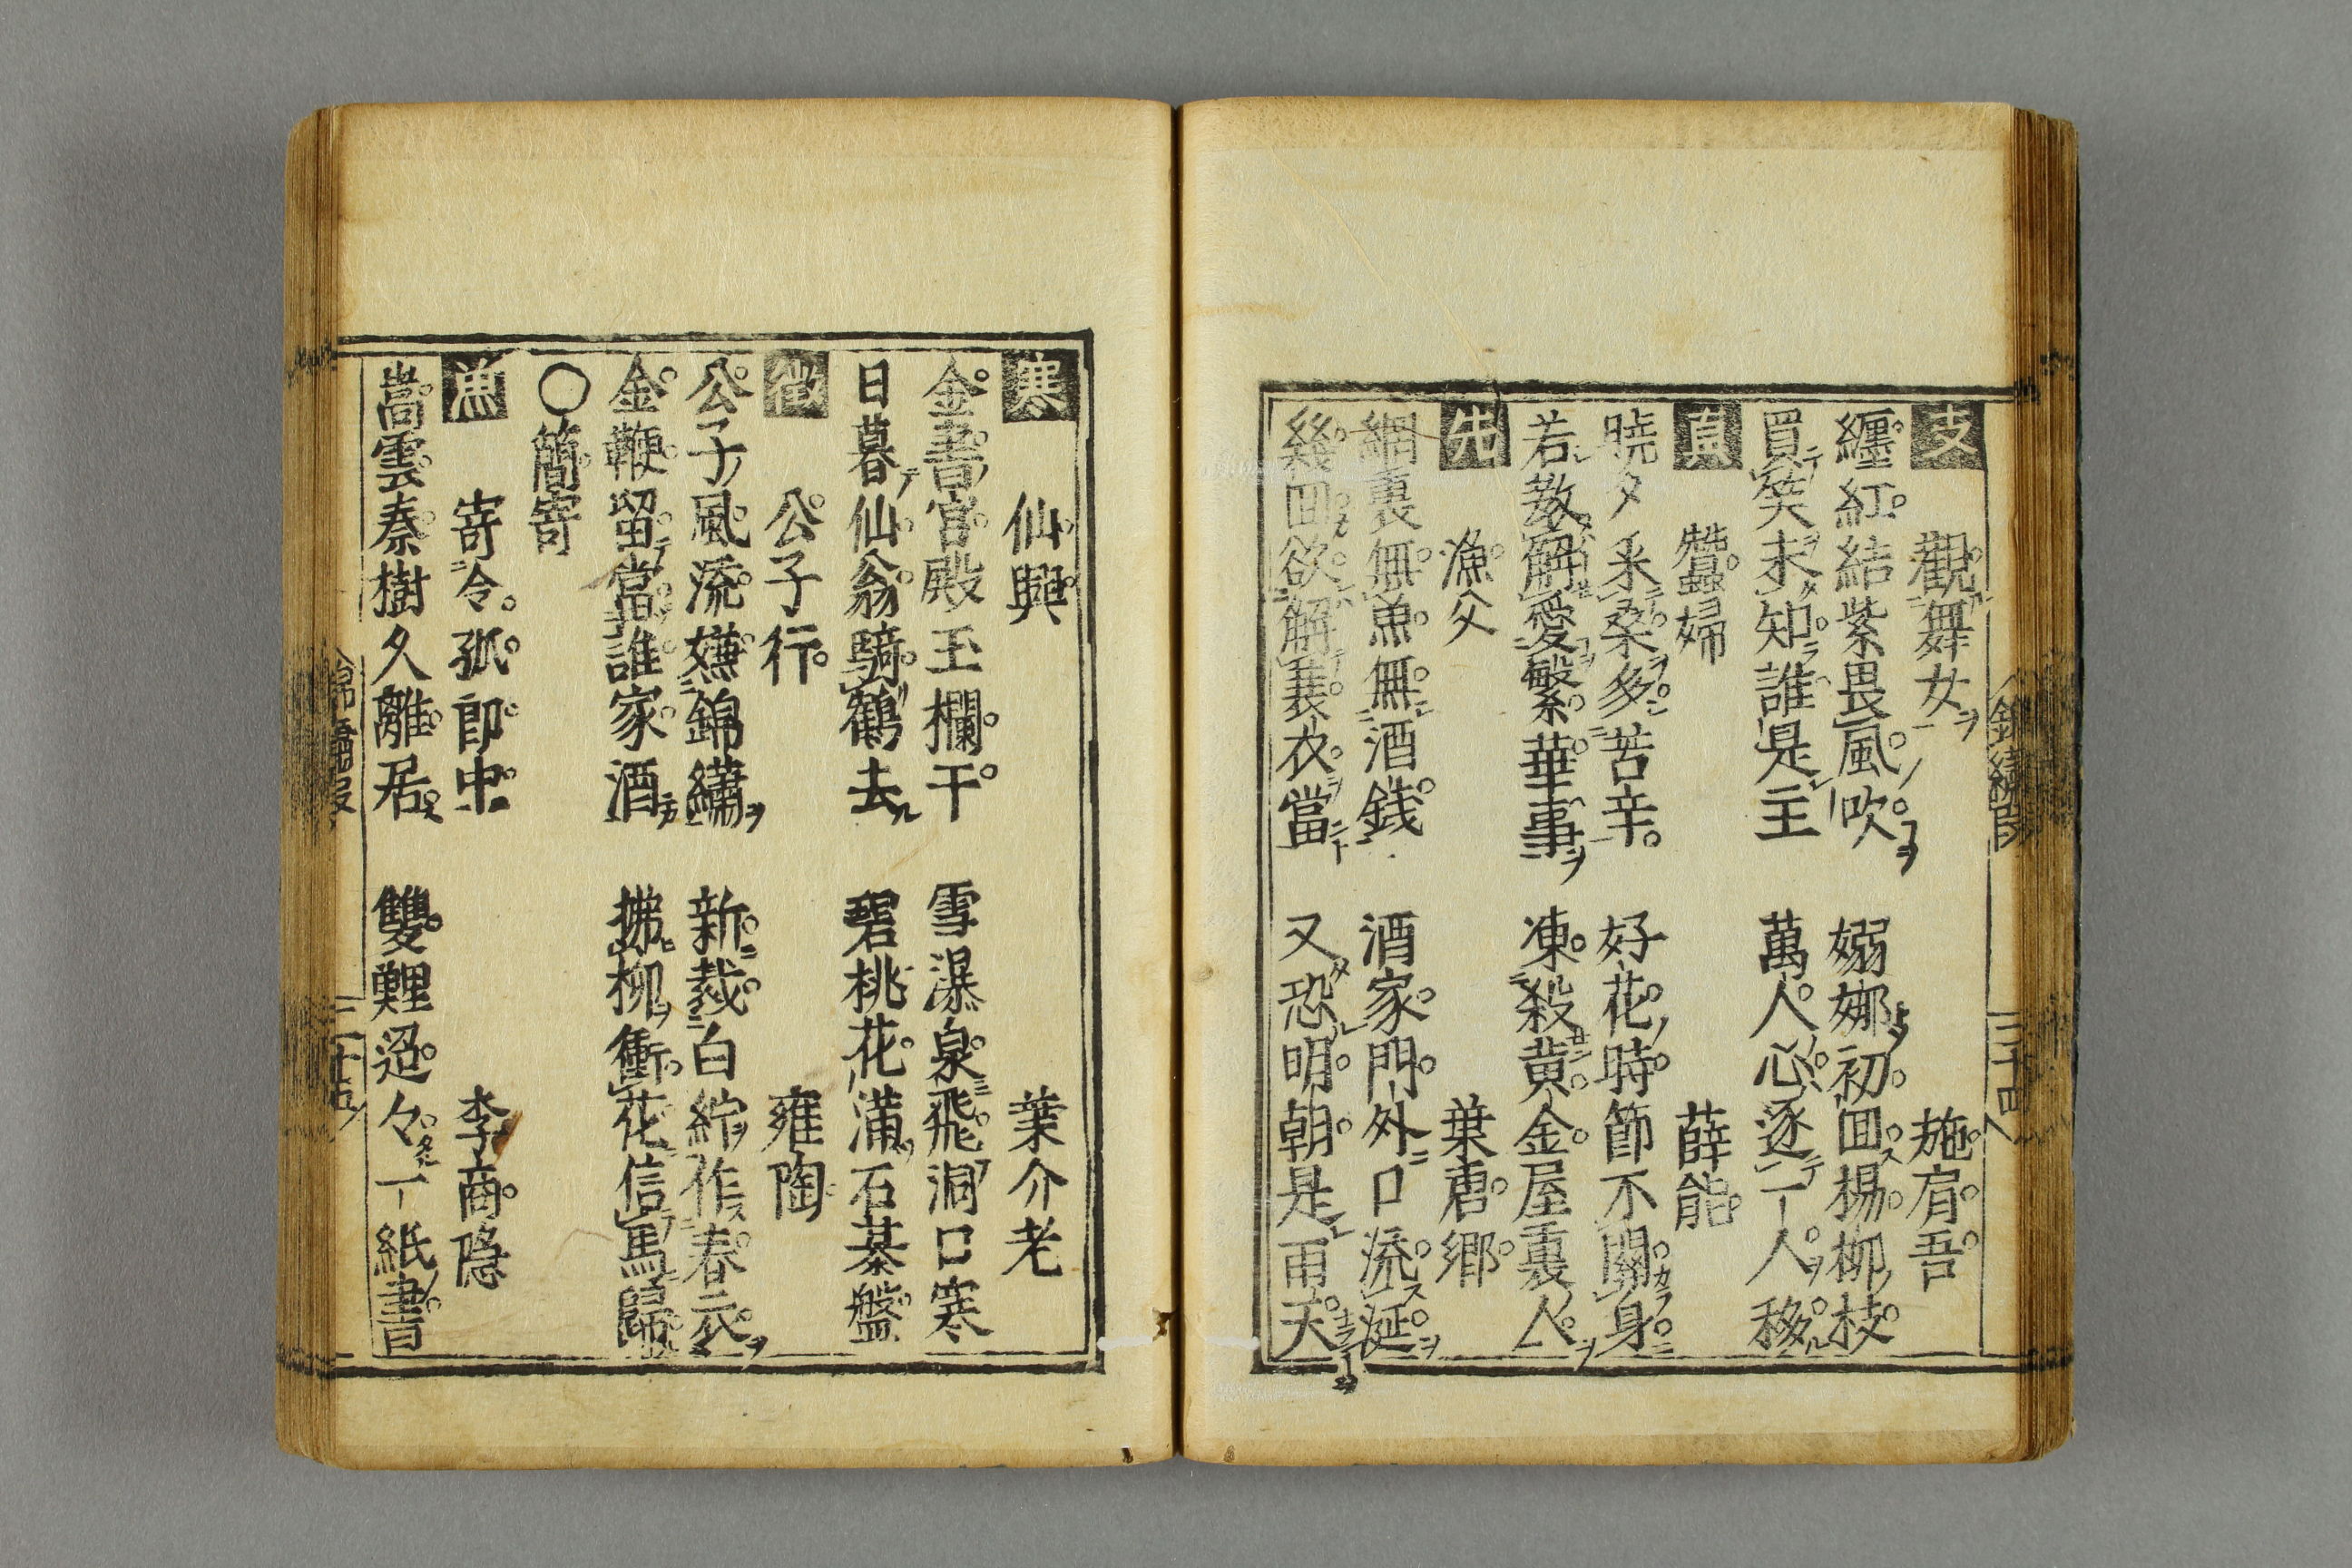 支 觀舞女 施肩吾
纏紅結紫畏風吹 嫋娜初囬楊柳枝
買笑未知誰是主 萬人心逐一人移
真 蠶婦 薛能
曉夕采桑多苦辛 好花時節不關身
若教解愛繁華事 凍殺黄金屋裏人
先 漁父 葉唐卿
網裏無魚無酒錢 酒家門外口流涎
幾囬欲解蓑衣當 又恐明朝是雨天
三十四
寒 仙興 葉介老
金書宮殿玉欄干 雪瀑泉飛洞口寒
日暮仙翁騎鶴去 碧桃花滿石棊盤
微 公子行 雍陶
公子風流嫌錦繡 新裁白紵作春衣
金鞭留當誰家酒 拂柳衝花信馬歸
○簡寄
魚 寄令狐郎中 李商隐
嵩雲秦樹久離居 雙鯉迢々一紙書